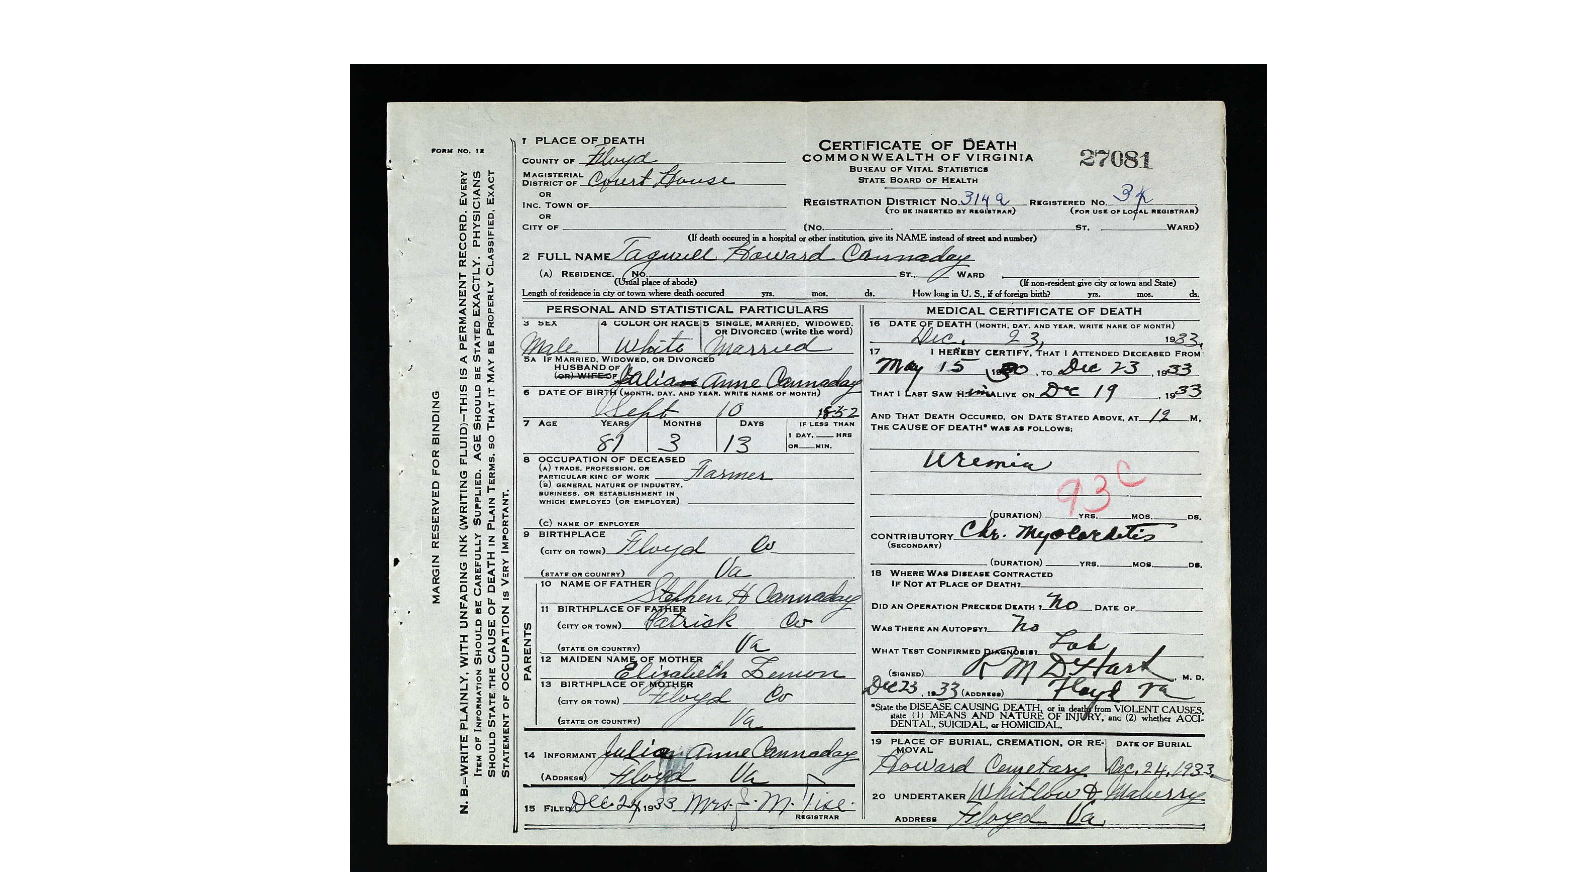 FORM NO. 12
MARGIN RESERVED FOR BINDING
N. B.—WRITE PLAINLY, WITH UNFADING INK (WRITING FLUID)—THIS IS A PERMANENT RECORD. EVERY
ITEM OF INFORMATION SHOULD BE CAREFULLY SUPPLIED. AGE SHOULD BE STATED EXACTLY. PHYSICIANS
SHOULD STATE THE CAUSE OF DEATH IN PLAIN TERMS, SO THAT IT MAY BE PROPERLY CLASSIFIED. EXACT
STATEMENT OF OCCUPATION IS VERY IMPORTANT.
1 PLACE OF DEATH
COUNTY OF Floyd
MAGISTERIAL
DISTRICT OF Court House
OR
INC. TOWN OF
OR
CITY OF
CERTIFICATE OF DEATH
COMMONWEALTH OF VIRGINIA
BUREAU OF VITAL STATISTICS
STATE BOARD OF HEALTH
27081
REGISTRATION DISTRICT NO. 314a REGISTERED NO.
(TO BE INSERTED BY REGISTRAR) (FOR USE OF LOCAL REGISTRAR)
(NO. ST. WARD)
(If death occured in a hospital or other institution, give its NAME instead of street and number)
2 FULL NAME Howard Cannaday
(A) RESIDENCE. NO. ST., WARD
(Usual place of abode) (If non-resident give city or town and State)
Length of residence in city or town where death occured yrs. mos. ds. How long in U. S., if of foreign birth? yrs. mos. ds.
PERSONAL AND STATISTICAL PARTICULARS
3 SEX 4 COLOR OR RACE 5 SINGLE, MARRIED, WIDOWED, OR DIVORCED (write the word)
Male White Married
5A IF MARRIED, WIDOWED, OR DIVORCED
HUSBAND OF
(OR) WIFE OF Anne Cannaday
6 DATE OF BIRTH (MONTH, DAY, AND YEAR, WRITE NAME OF MONTH)
Sept 10 1852
7 AGE YEARS MONTHS DAYS IF LESS THAN
1 DAY, HRS
OR MIN.
81 3 13
8 OCCUPATION OF DECEASED
(A) TRADE, PROFESSION, OR
PARTICULAR KIND OF WORK Farmer
(B) GENERAL NATURE OF INDUSTRY,
BUSINESS, OR ESTABLISHMENT IN
WHICH EMPLOYED (OR EMPLOYER)
(C) NAME OF EMPLOYER
9 BIRTHPLACE
(CITY OR TOWN) Floyd Co
(STATE OR COUNTRY) Va
PARENTS
10 NAME OF FATHER Stephen H Cannaday
11 BIRTHPLACE OF FATHER
(CITY OR TOWN) Patrick Co
(STATE OR COUNTRY) Va
12 MAIDEN NAME OF MOTHER
Elizabeth Lemon
13 BIRTHPLACE OF MOTHER
(CITY OR TOWN) Floyd Co
(STATE OR COUNTRY) Va
14 INFORMANT Anne Cannaday
(ADDRESS) Floyd Va
15 FILED Dec. 24, 1933 Mrs. J. M. Tise.
REGISTRAR
MEDICAL CERTIFICATE OF DEATH
16 DATE OF DEATH (MONTH, DAY, AND YEAR, WRITE NAME OF MONTH)
Dec. 23, 1933,
17 I HEREBY CERTIFY, THAT I ATTENDED DECEASED FROM
May 15 , 1930 , TO Dec 23 , 1933
THAT I LAST SAW Him ALIVE ON Dec 19 , 1933
AND THAT DEATH OCCURED, ON DATE STATED ABOVE, AT 12 M,
THE CAUSE OF DEATH* WAS AS FOLLOWS:
Uremia
93C
(DURATION) YRS. MOS. DS.
CONTRIBUTORY Chr. Myocarditis
(SECONDARY)
(DURATION) YRS. MOS. DS.
18 WHERE WAS DISEASE CONTRACTED
IF NOT AT PLACE OF DEATH?
DID AN OPERATION PRECEDE DEATH? No DATE OF
WAS THERE AN AUTOPSY? No
WHAT TEST CONFIRMED DIAGNOSIS? Lab
(SIGNED) R M DeHart M. D.
Dec 23, 1933 (ADDRESS) Floyd Va
*State the DISEASE CAUSING DEATH, or in death from VIOLENT CAUSES,
state (1) MEANS AND NATURE OF INJURY, and (2) whether ACCI-
DENTAL, SUICIDAL, or HOMICIDAL.
19 PLACE OF BURIAL, CREMATION, OR RE-MOVAL DATE OF BURIAL
Howard Cemetary Dec. 24, 1933
20 UNDERTAKER Whitlow & Maberry
ADDRESS Floyd Va.